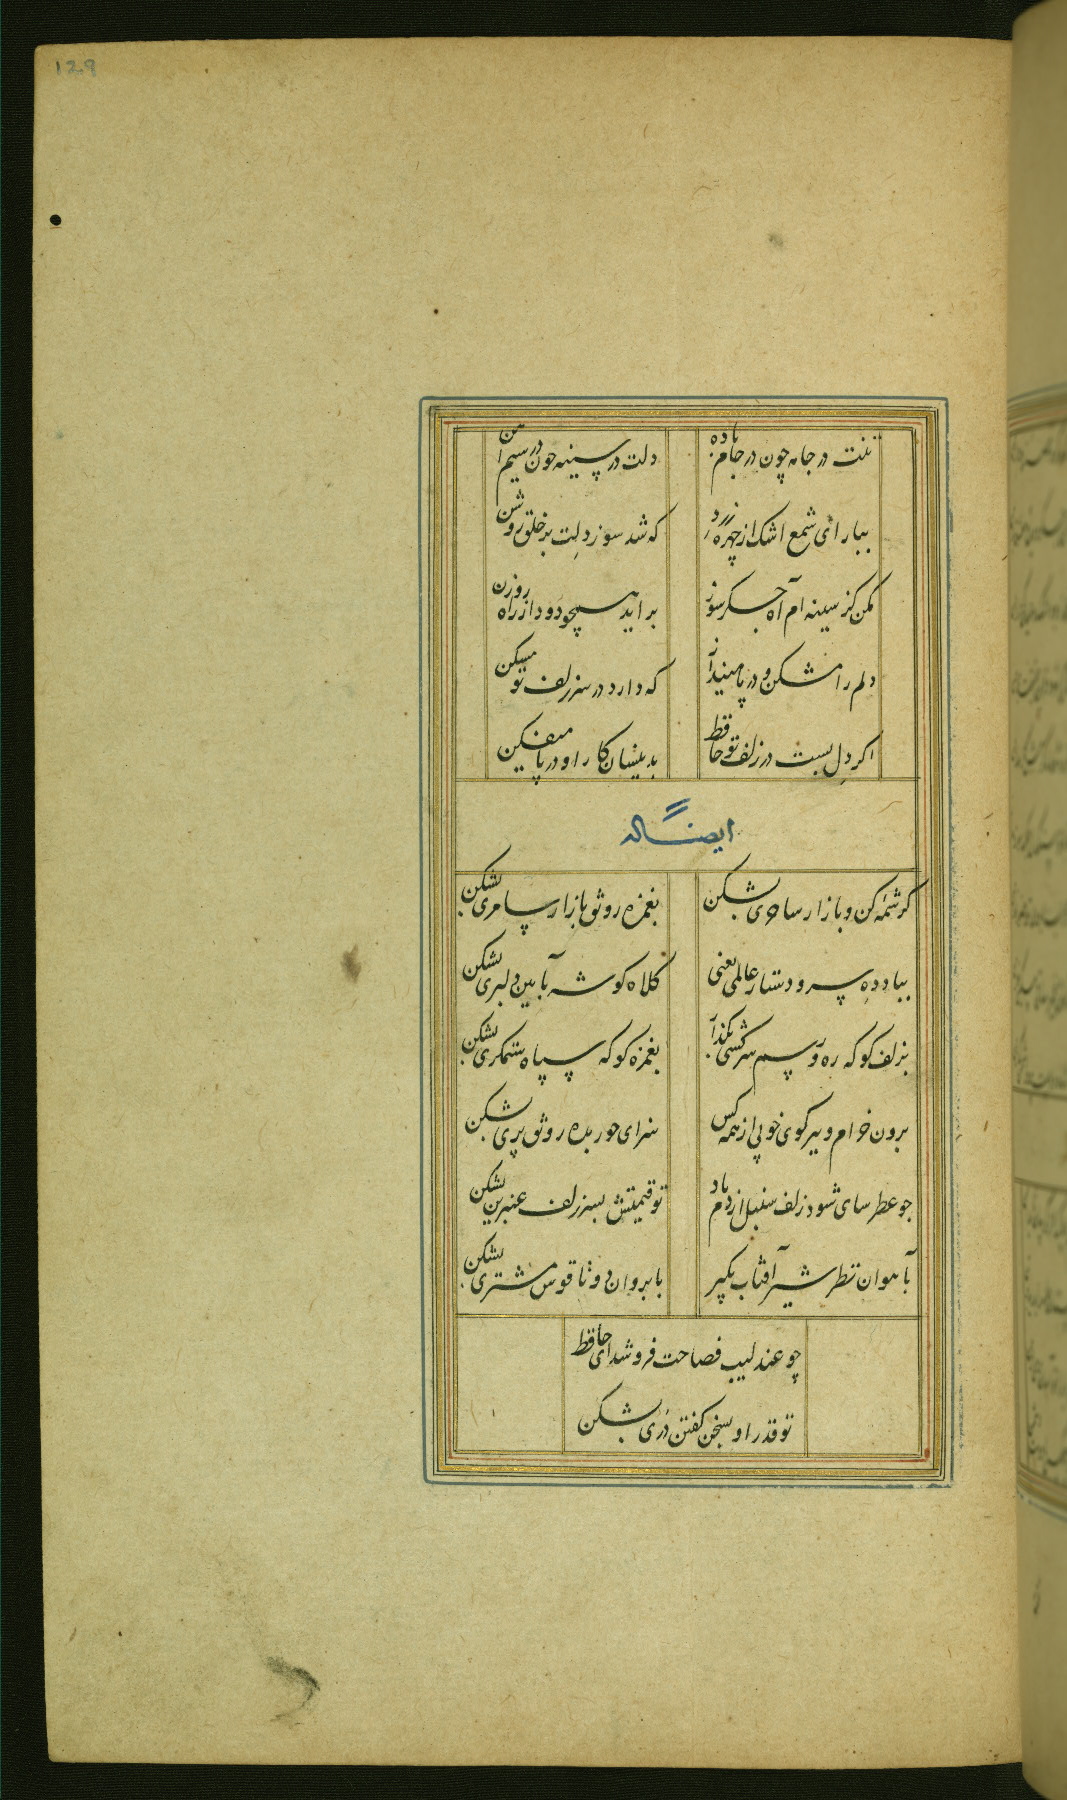 129
تنت در جامه چون در جام باده
دلت در سینه چون در سیم آهن
ببار ای شمع اشک از چهره زرد
که شد سوز دلت بر خلق روشن
مکن کز سینه ام آه جکر سوز
بر اید همچو دود از راه روزن
دلم را مشکن و در پا مینداز
که دارد در سر زلف تو مسکن
اکر دل بست در زلف تو حافظ
بدینسان کار او در پا میفکن
ایضاً له
کرشمه کن و بازار ساحری بشکن
بغمزه رونق بازار سامری بشکن
بباد ده سر و دستار عالمی یعنی
کلاه کوشه بآیین دلبری بشکن
بزلف کو که ره و رسم سرکشی بگذار
بغمزه کو که سپاه ستمکری بشکن
برون خرام و ببر کوی خوبی از همه کس
سزای حور بده رونق پری بشکن
چو عطر سای شود زلف سنبل از دم باد
تو قیمتش بسر زلف عنبرین بشکن
بآهوان نظر شیر آفتاب بگیر
بابروان دوتا قوس مشتری بشکن
چو عندلیب فصاحت فروشد ای حافظ
تو قدر او بسخن کفتن دری بشکن